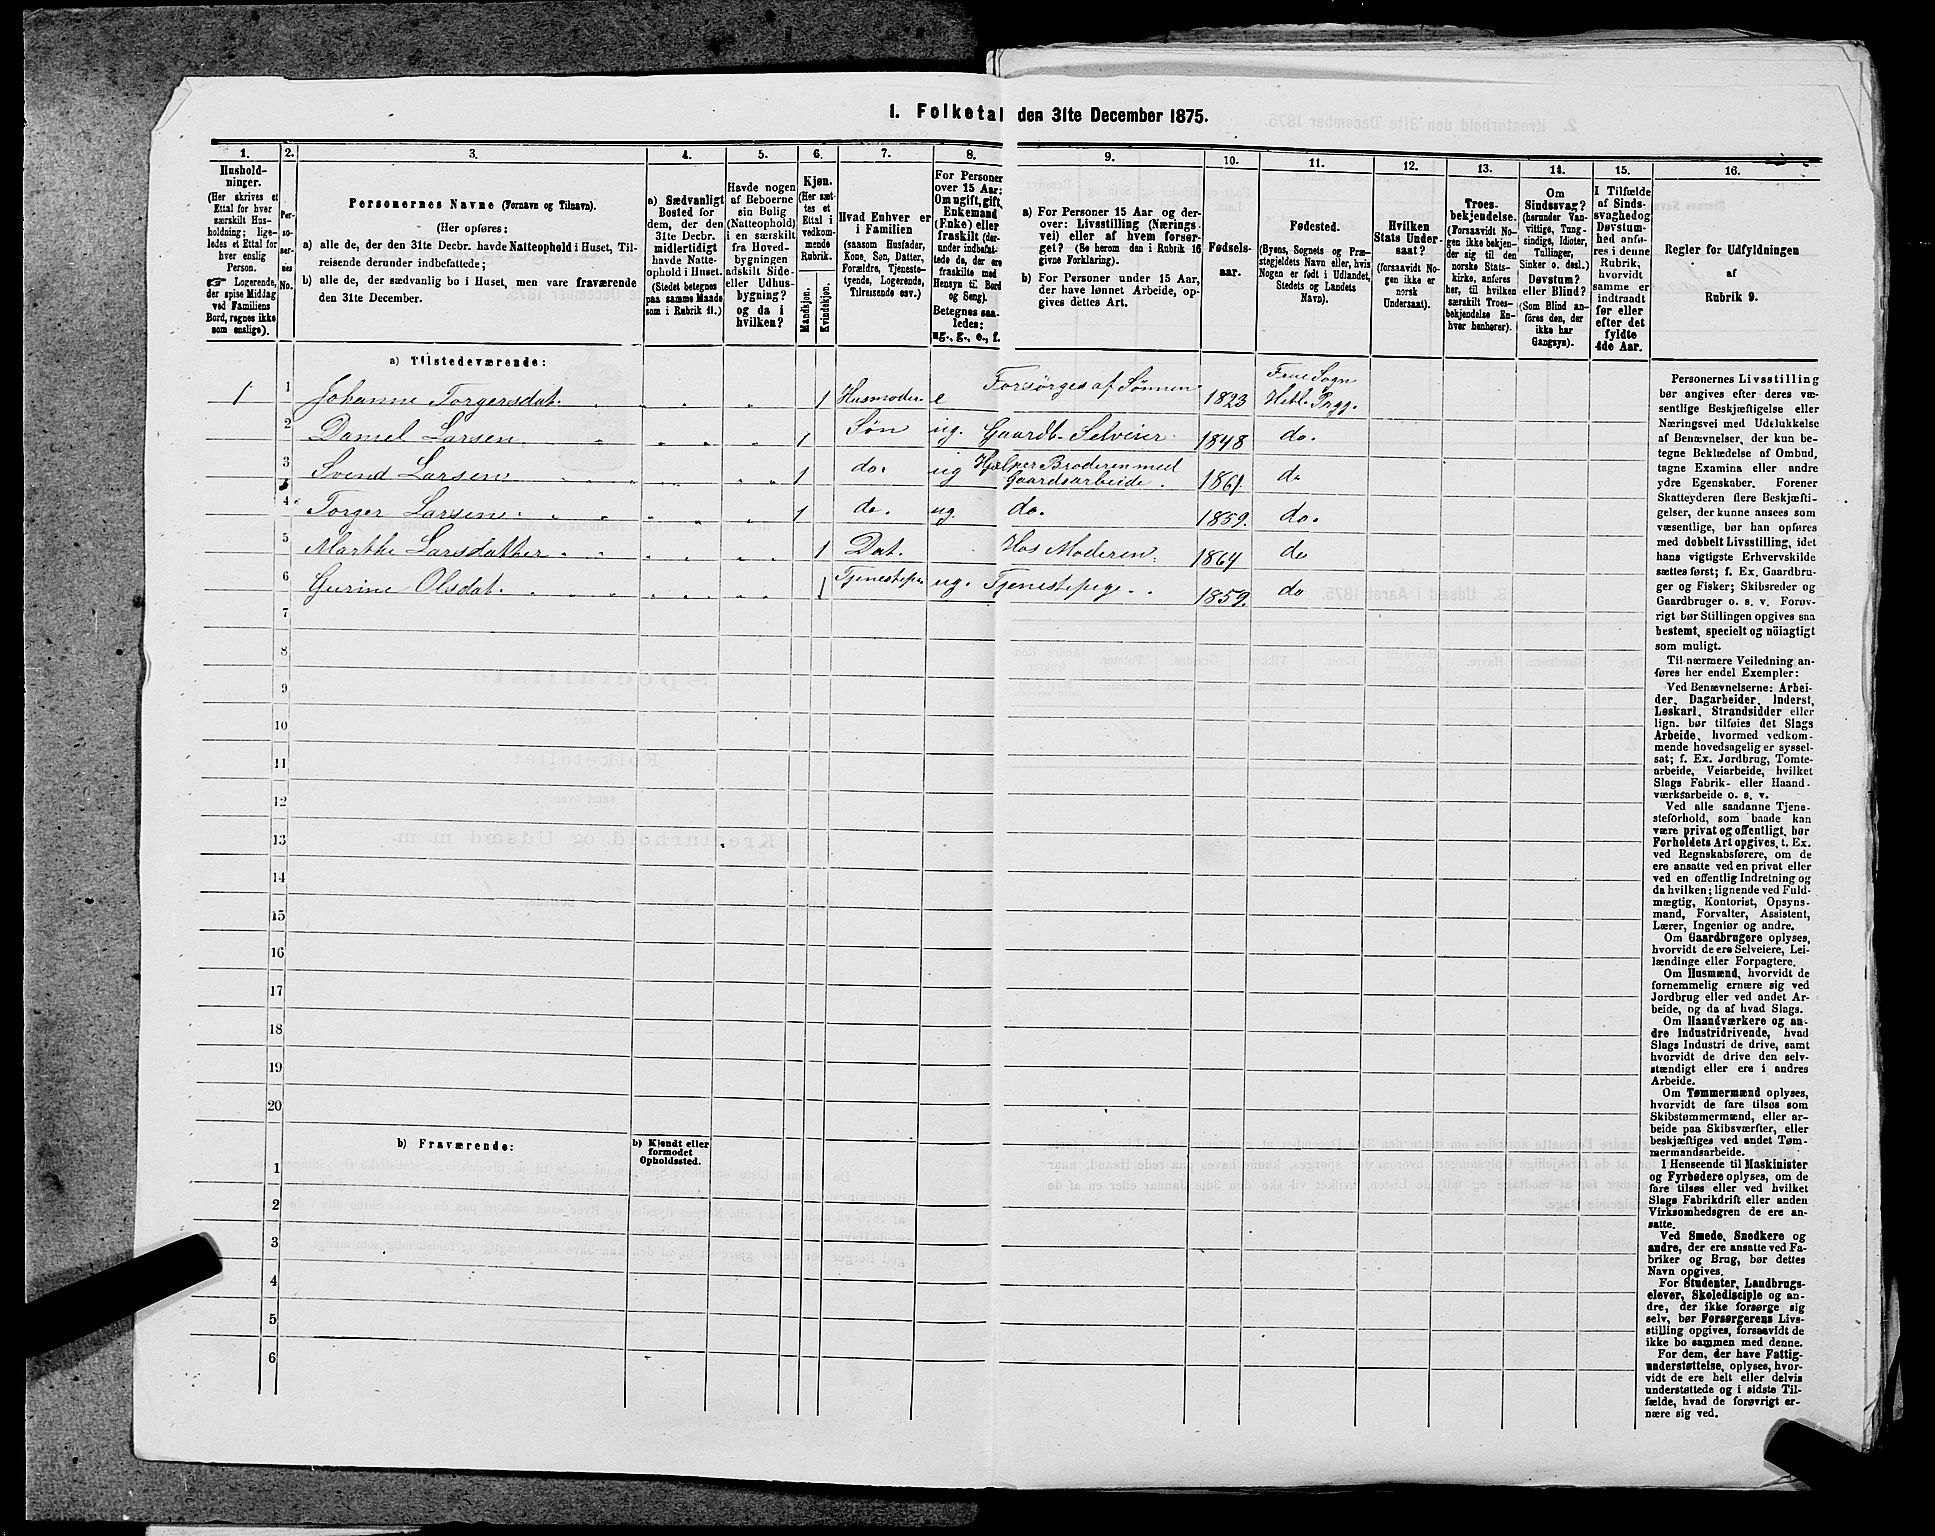 1. Folketal den 31te December 1875.
1. 2. 3. 4. 5. 6. 7. 8. 9. 10. 11. 12. 13. 14. 15. 16.
Hushold-
ninger.
(Her skrives et
Ettal for hver
særskilt Hus-
holdning; lige-
ledes et Ettal for
hver enslig
Person.
☞ Logerende,
der spise Middag
ved Familiens
Bord, regnes ikke
som enslige).
Per-
so-
ner-
nes
No.
Personernes Navne (Fornavn og Tilnavn).
(Her opføres:
a) alle de, der den 31te Decbr. havde Natteophold i Huset, Til-
reisende derunder indbefattede;
b) alle de, der sædvanlig bo i Huset, men vare fraværende
den 31te December.
a) Sædvanligt
Bosted for
dem, der den
31te Decbr.
midlertidigt
havde Natte-
ophold i Huset.
(Stedet betegnes
paa samme Maade
som i Rubrik 11.)
Havde nogen
af Beboerne
sin Bolig
(Natteophold)
i en særskilt
fra Hoved-
bygningen
adskilt Side-
eller Udhus-
bygning?
og da i
hvilken?
Kjøn.
(Her sæt-
tes et
Ettal i
vedkom-
mende
Rubrik.
Mandkjøn.
Kvindekjøn.
Hvad Enhver er
i Familien
(saasom Husfader,
Kone, Søn, Datter,
Forældre, Tjeneste-
tyende, Logerende,
Tilreisende osv.)
For Personer
over 15 Aar:
Om ugift, gift,
Enkemand
(Enke) eller
fraskilt (der-
under indbefat-
tede de, der ere
fraskilte med
Hensyn til Bord
og Seng).
Betegnes saa-
ledes:
ug., g., e., f.
a) For Personer 15 Aar og der-
over: Livsstilling (Nærings-
vei) eller af hvem forsør-
get? (Se herom den i Rubrik 16
givne Forklaring).
b) For Personer under 15 Aar,
der have lønnet Arbeide, op-
gives dettes Art.
Fødsels-
aar.
Fødested.
(Byens, Sognets og Præ-
stegjeldets Navn eller, hvis
Nogen er født i Udlandet,
Stedets og Landets
Navn).
Hvilken
Stats Under-
saat?
(forsaavidt No-
gen ikke er
norsk
Undersaat).
Troes-
bekjendelse.
(Forsaavidt No-
gen ikke bekjen-
der sig til den
norske Stats-
kirke, anføres
her, til hvilken
særskilt Troes-
bekjendelse En-
hver henhører).
Om
Sindssvag?
(herunder Van-
vittige, Tung-
sindige, Idioter,
Tullinger,
Sinker o. desl.)
Døvstum?
eller Blind?
(Som Blind an-
føres den, der
ikke har
Gangsyn).
I Tilfælde
af Sinds-
svaghed og
Døvstum-
hed anfø-
res i denne
Rubrik,
hvorvidt
samme er
indtraadt
før eller
efter det
fyldte
4de Aar.
Regler for Udfyldningen
af
Rubrik 9.
a) Tilstedeværende:
1 1 Johanne Torgersdat. 1 Husmoder e Forsørges af Sønnen 1823 Frue Sogn
Hetl. Prgj.
2 Daniel Larsen 1 Søn ug. Gaardb. Selveier 1848 do.
3 Svend Larsen 1 do. ug Hjelper Broderen med
Gaardsarbeide. 1861. do
4 Torger Larsen 1 do. ug. do. 1859. do.
5 Marthe Larsdatter 1 Dat. Hos Moderen 1864 do
6 Gurine Olsdat. 1 ug. Tjenestepige 1859. do
7
8
9
10
11
12
13
14
15
16
17
18
19
20
b) Fraværende: b) Kjendt eller
formodet
Opholdssted.
1
2
3
4
5
6
Personernes Livsstilling
bør angives efter deres væ-
sentlige Beskjæftigelse eller
Næringsvei med Udelukkelse
af Benævnelser, der kun be-
tegne Beklædelse af Ombud,
tagne Examina eller andre
ydre Egenskaber. Forener
Skatteyderen flere Beskjæfti-
gelser, der kunne ansees som
væsentlige, bør han opføres
med dobbelt Livsstilling, idet
hans vigtigste Erhvervskilde
sættes først; f. Ex. Gaardbru-
ger og Fisker; Skibsreder og
Gaardbruger o. s. v. Forøv-
rigt bør Stillingen opgives saa
bestemt, specielt og nöiagtigt
som muligt.
Til nærmere Veiledning an-
føres her endel Exempler:
Ved Benævnelserne: Arbei-
der, Dagarbeider, Inderst,
Løskarl, Strandsidder eller
lign. bør tilføies det Slags
Arbeide, hvormed vedkom-
mende hovedsagelig er syssel-
sat; f. Ex. Jordbrug, Tomte-
arbeide, Veiarbeide, hvilket
Slags Fabrik- eller Haand-
værksarbeide o. s. v.
Ved alle saadanne Tjene-
steforhold, som baade kan
være privat og offentligt, bør
Forholdets Art opgives, t. Ex.
ved Regnskabsførere, om de
ere ansatte ved en privat eller
ved en offentlig Indretning og
da hvilken; lignende ved Fuld-
mægtig, Kontorist, Opsyns-
mand, Forvalter, Assistent,
Lærer, Ingeniør og andre.
Om Gaardbrugere oplyses,
hvorvidt de ere Selveiere, Lei-
lændinge eller Forpagtere.
Om Husmænd, hvorvidt de
fornemmelig ernære sig ved
Jordbrug eller ved andet Ar-
beide, og da af hvad Slags.
Om Haandværkere og an-
dre Industridrivende, hvad
Slags Industri de drive, samt
hvorvidt de drive den selv-
stændigt eller ere i andres
Arbeide.
Om Tømmermænd oplyses,
hvorvidt de fare tilsøs som
Skibstømmermænd, eller ar-
beide paa Skibsværfter, eller
beskjæftiges ved andet Tøm-
mermandsarbeide.
I Henseende til Maskinister
og Fyrbødere oplyses, om de
fare tilsøs eller ved hvilket
Slags Fabrikdrift eller anden
Virksomhedsgren de ere an-
satte.
Ved Smede, Snedkere og
andre, der ere ansatte ved Fa-
briker og Brug, bør dettes
Navn opgives.
For Studenter, Landbrugs-
elever, Skoledisciple og an-
dre, der ikke forsørge sig
selv, bør Forsørgerens Livs-
stilling opgives, forsaavidt de
ikke bo sammen med denne.
For dem, der have Fattig-
understøttelse, oplyses, hvor-
vidt de ere helt eller delvis
understøttede og i sidste Til-
fælde, hvad de forøvrigt er-
nære sig ved.